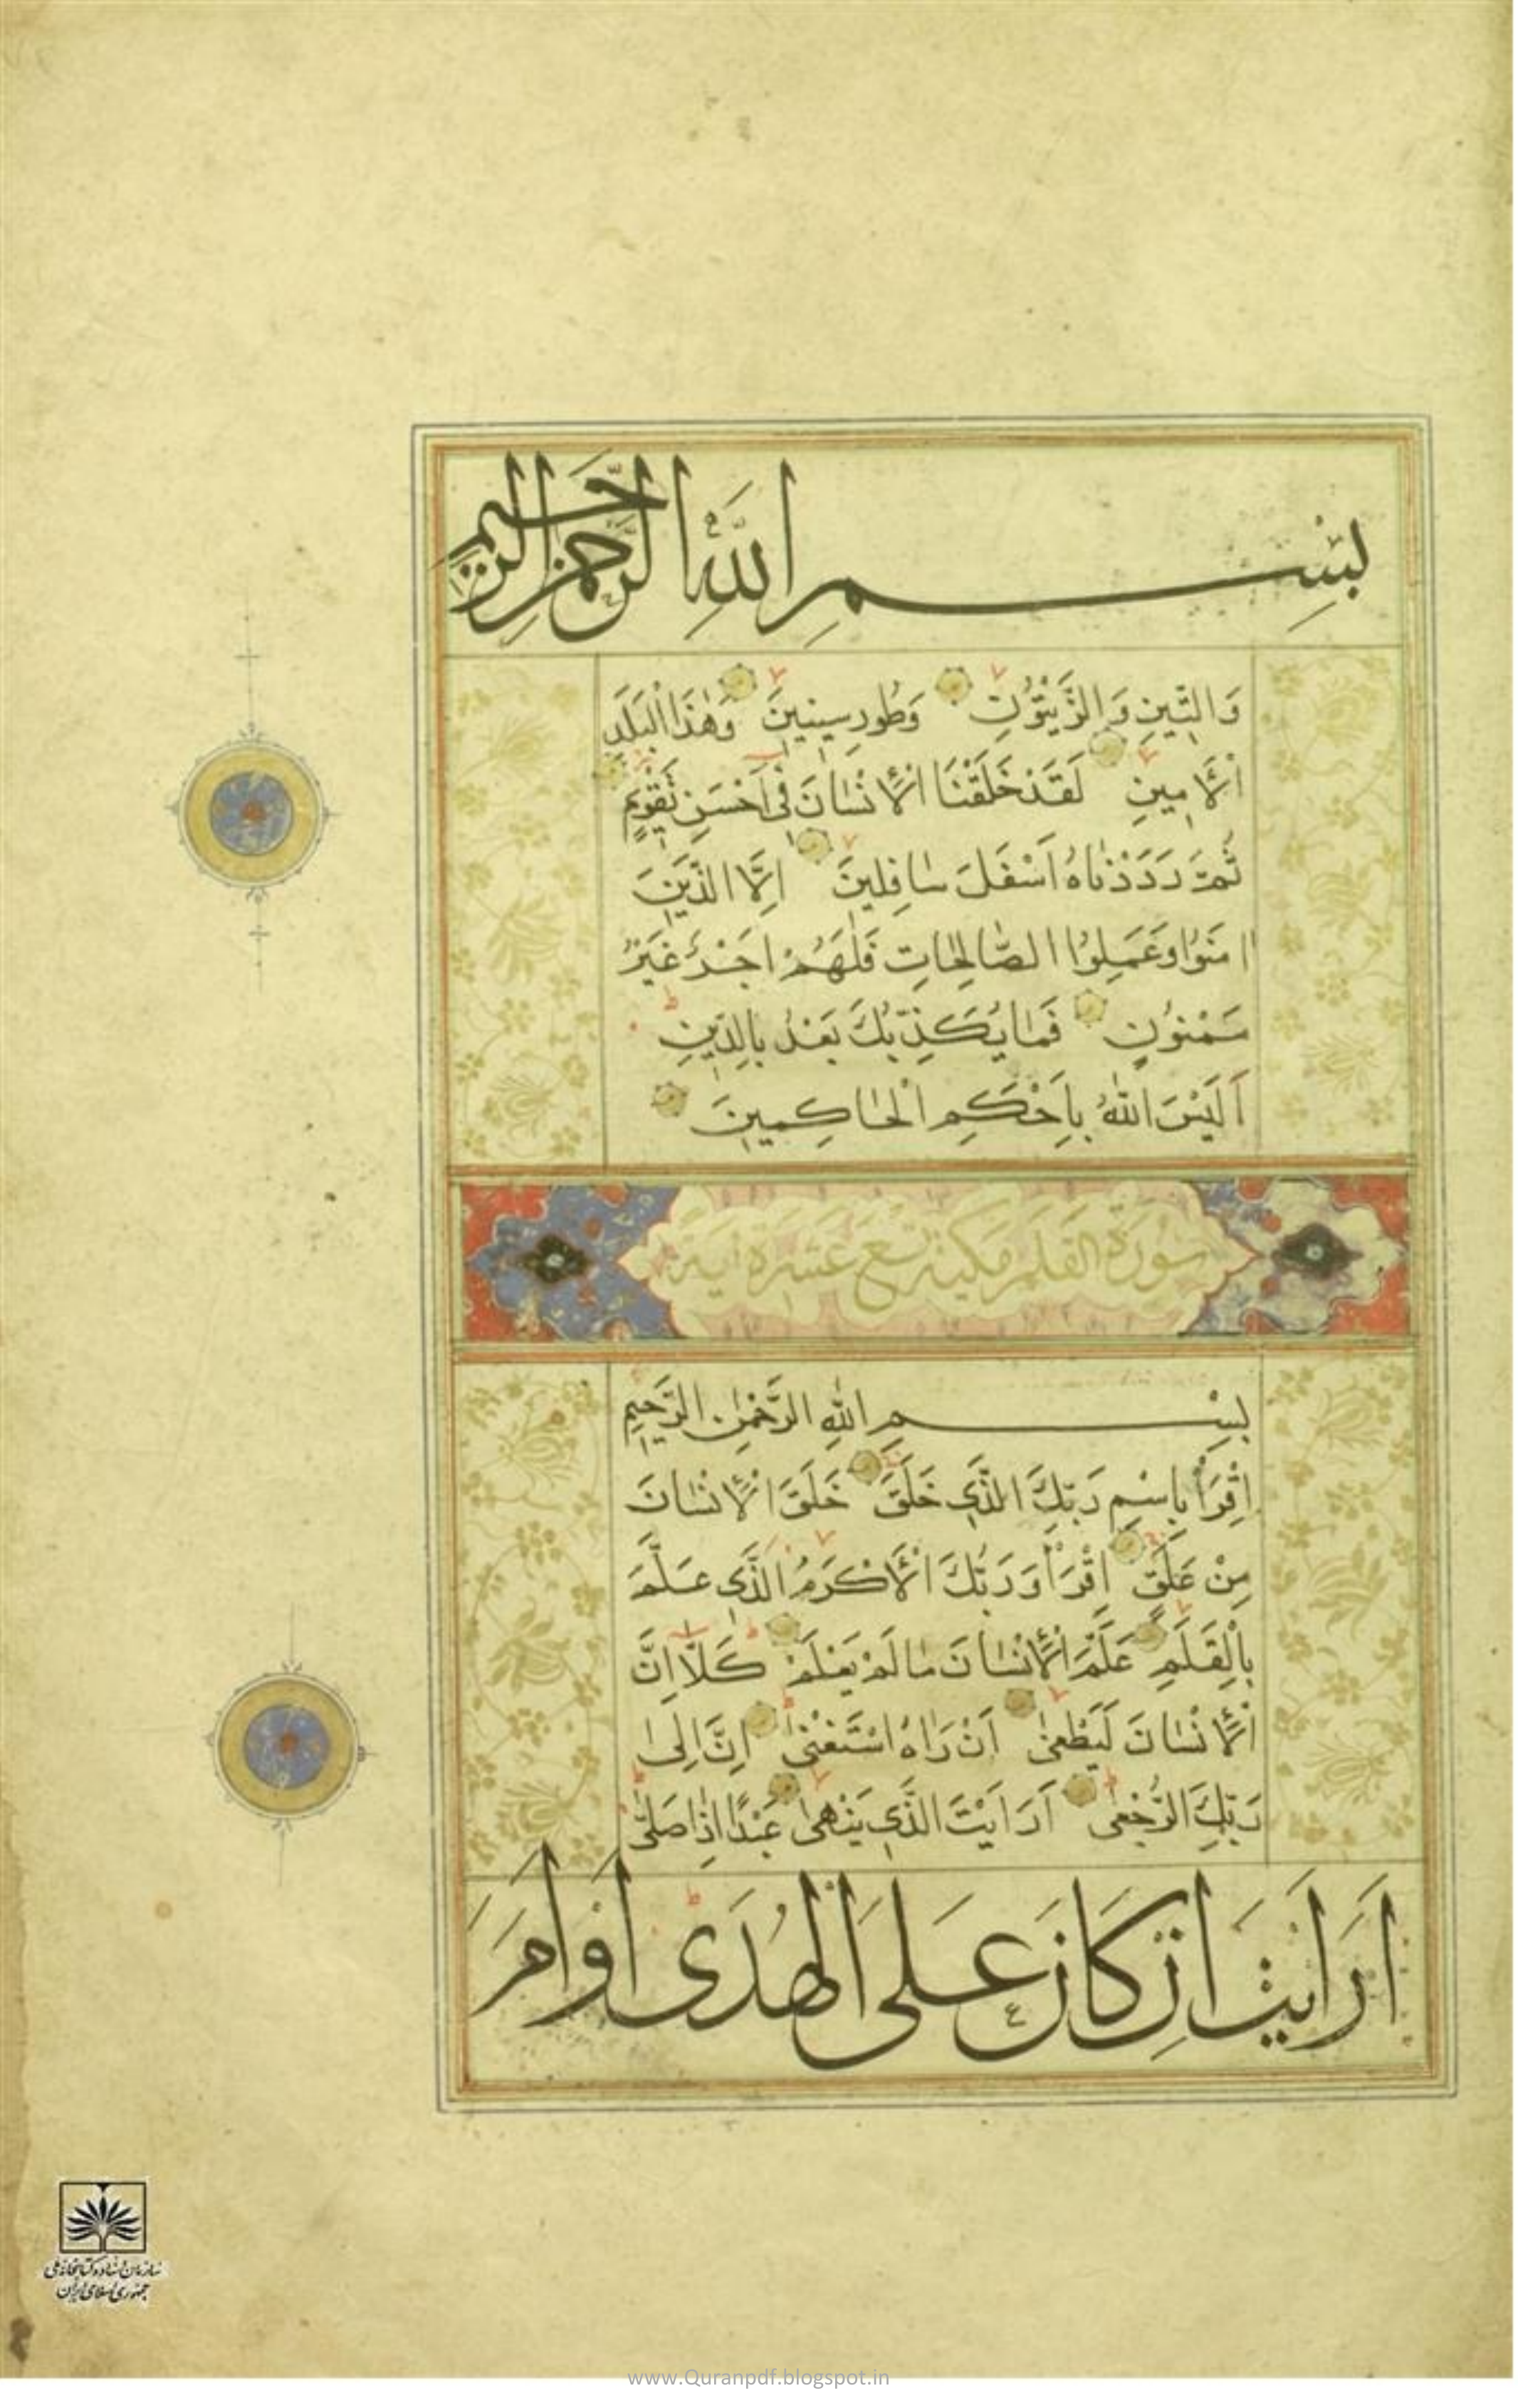 بِسْمِ اللّٰهِ الرَّحْمٰنِ الرَّحِيمِ
وَالتِّينِ وَالزَّيْتُونِ وَطُورِ سِينِينَ وَهٰذَا الْبَلَدِ
الْأَمِينِ لَقَدْ خَلَقْنَا الْإِنْسَانَ فِي أَحْسَنِ تَقْوِيمٍ
ثُمَّ رَدَدْنَاهُ أَسْفَلَ سَافِلِينَ إِلَّا الَّذِينَ
اٰمَنُوا وَعَمِلُوا الصَّالِحَاتِ فَلَهُمْ أَجْرٌ غَيْرُ
مَمْنُونٍ فَمَا يُكَذِّبُكَ بَعْدُ بِالدِّينِ
أَلَيْسَ اللّٰهُ بِأَحْكَمِ الْحَاكِمِينَ
سُورَةُ القَلَمِ مَكِّيَّة تِسْعَ عَشَرَة آيَة
بِسْمِ اللّٰهِ الرَّحْمٰنِ الرَّحِيمِ
اِقْرَأْ بِاسْمِ رَبِّكَ الَّذِي خَلَقَ خَلَقَ الْإِنْسَانَ
مِنْ عَلَقٍ اِقْرَأْ وَرَبُّكَ الْأَكْرَمُ الَّذِي عَلَّمَ
بِالْقَلَمِ عَلَّمَ الْإِنْسَانَ مَا لَمْ يَعْلَمْ كَلَّا إِنَّ
الْإِنْسَانَ لَيَطْغٰى أَنْ رَاٰهُ اسْتَغْنٰى إِنَّ إِلٰى
رَبِّكَ الرُّجْعٰى أَرَاَيْتَ الَّذِي يَنْهٰى عَبْدًا إِذَا صَلّٰى
أَرَاَيْتَ إِنْ كَانَ عَلَى الْهُدَى أَوْ أَمَرَ
سازمان اسناد و کتابخانه ملی
جمهوری اسلامی ایران
www.Quranpdf.blogspot.in